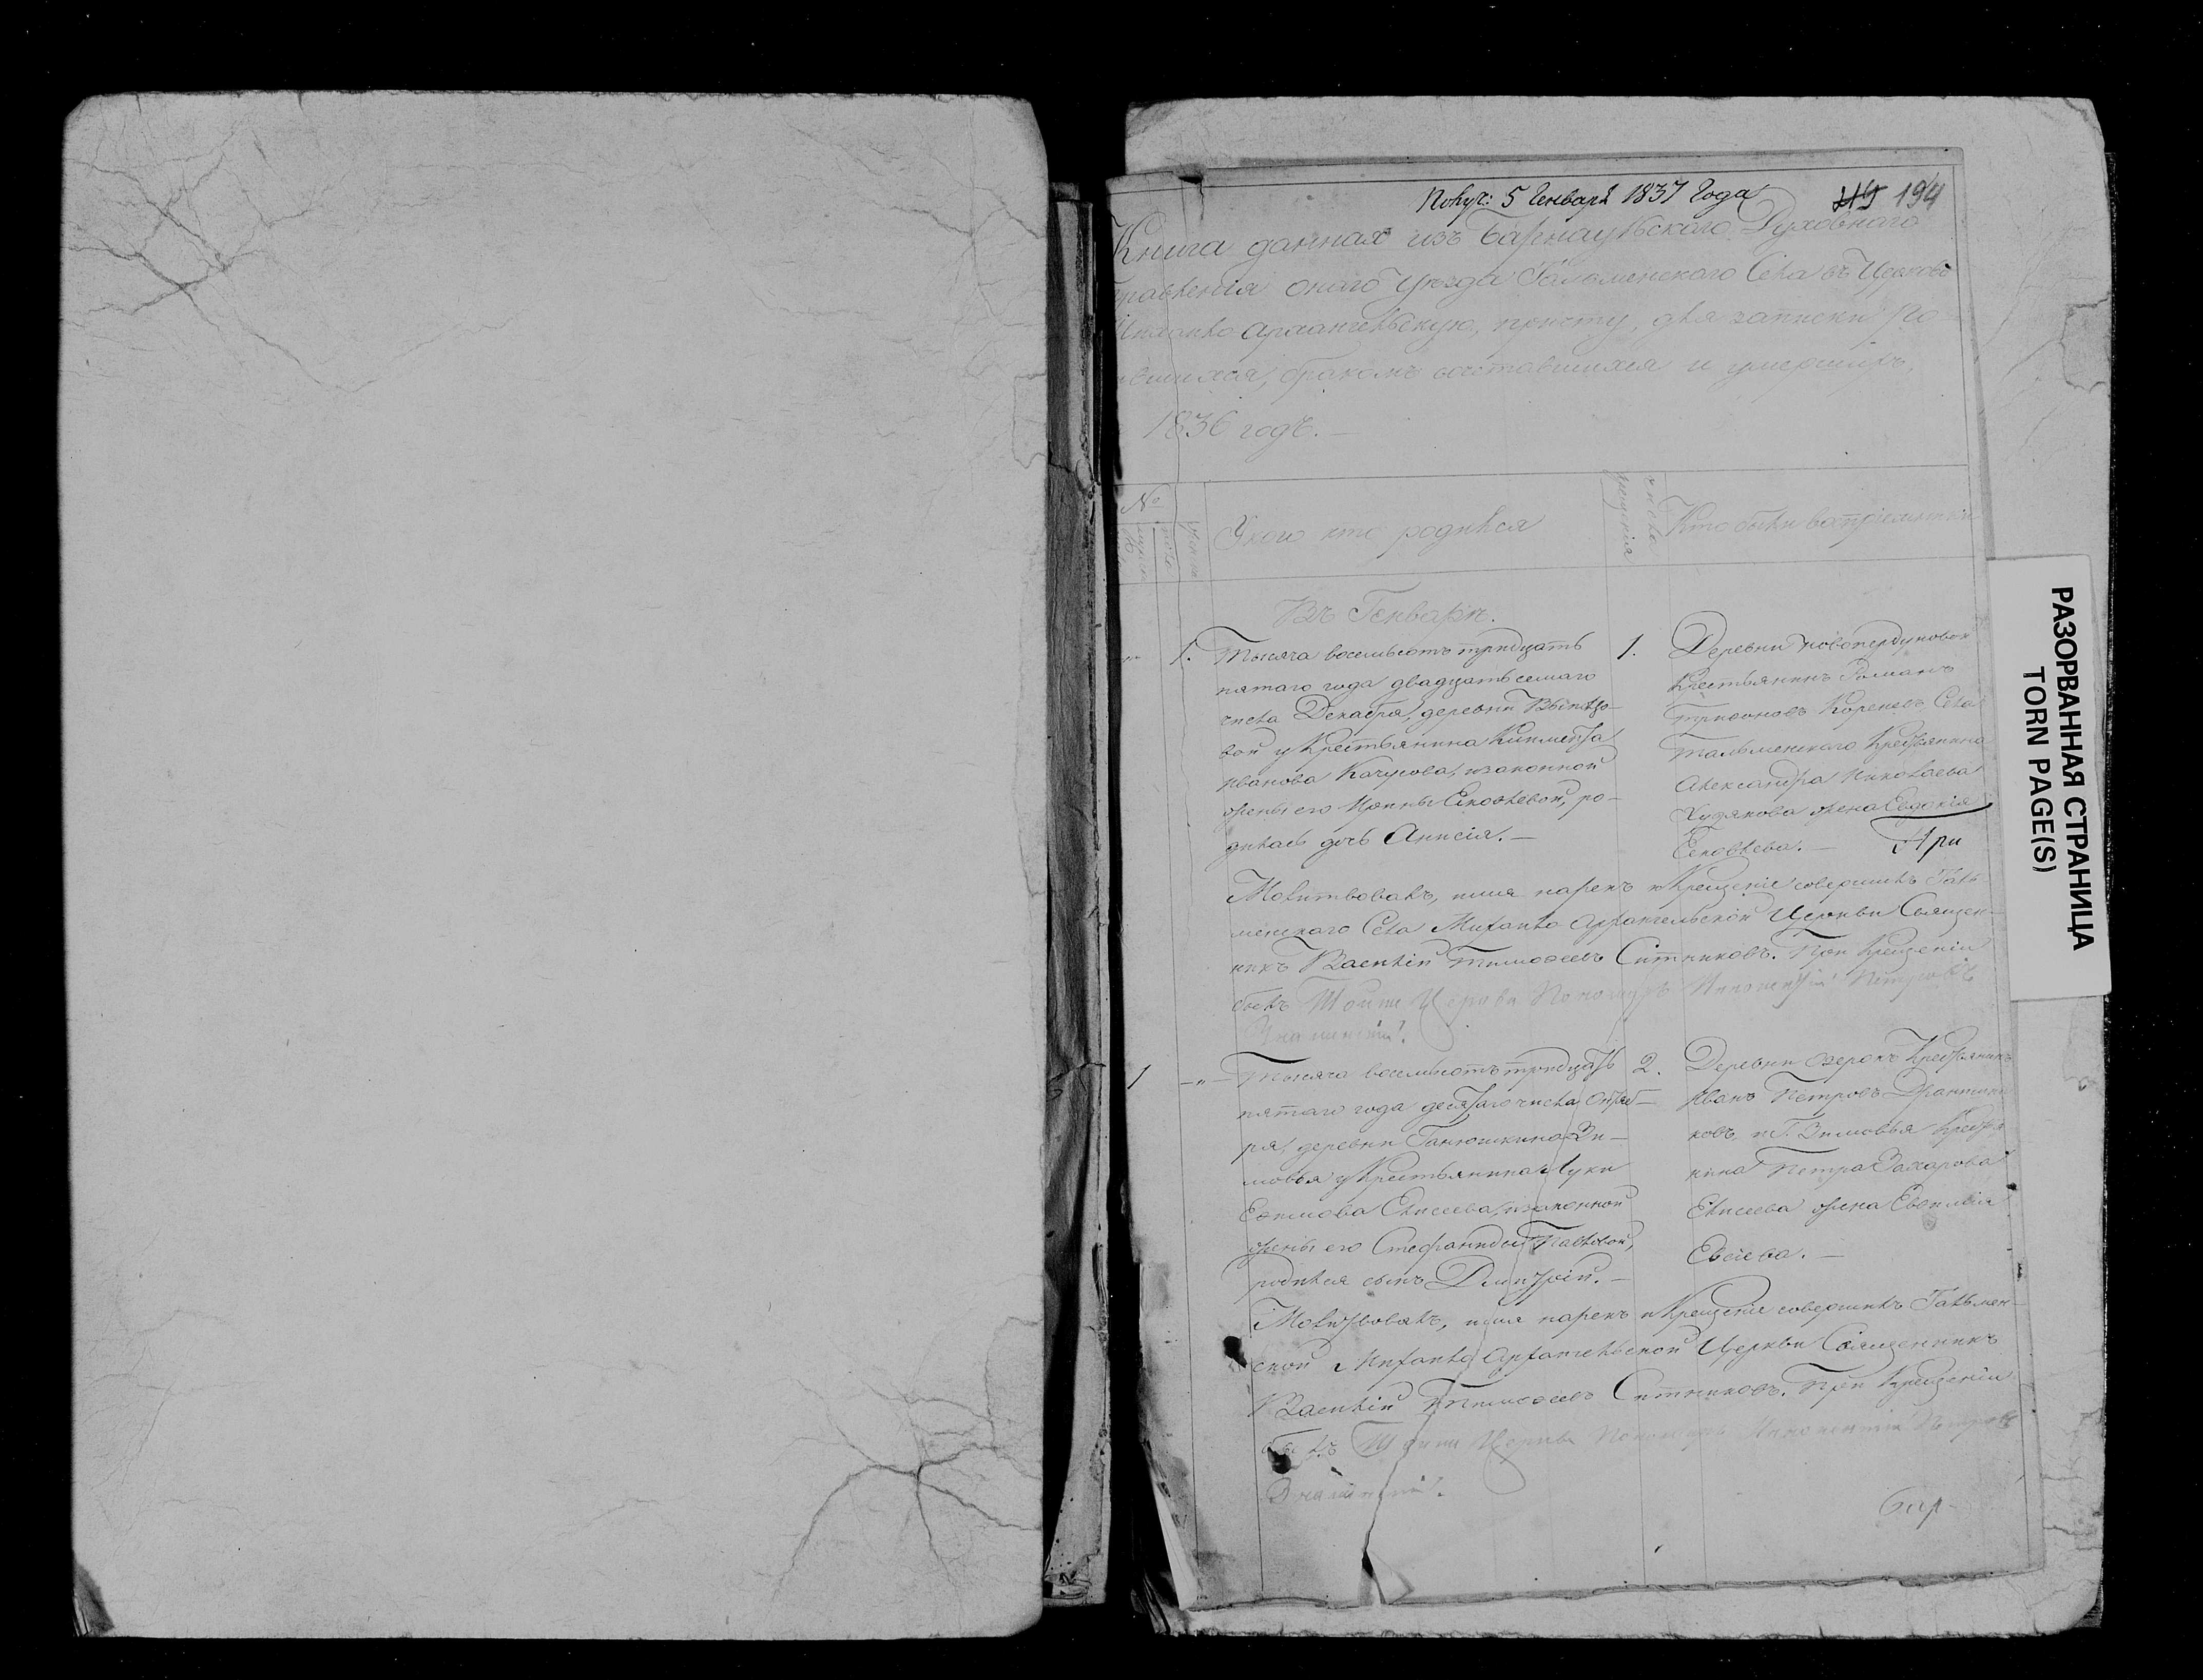 Получ: 5 Генваря 1837 Года
119 194
Книга данная изъ Барнаульскаго Духовнаго
правленія онаго уѣзда Тальменскаго Села въ Церковь
Михаило Архангельскую, причту, для записки Ро-
дившихся, бракомъ сочетавшихся и умершихъ,
1836 годъ. —
№
У кого кто родился
Кто были воспріемники
Въ Генварѣ.
1. Тысяча восемьсотъ тридцать
пятаго года двадцать седмаго
числа Декабря, деревни
вой у Крестьянина Климента
Иванова Качусова, изаконной
жены его Ирины Еловлевой, ро-
дилась дочь Анисія. —
1. Деревни
Крестьянинъ Романъ
Трифоновъ Кореневъ, Села
Тальменскаго Крестьянина
Александра Николаева
Худякова жена Евдокія
—
При
Молитвовалъ, имя нарекъ и Крещеніе совершилъ Таль-
менскаго Села Михаило Архангельской Церкви Священ-
никъ Василій Тимофеевъ Ситниковъ. При Крещеніи
былъ Тойже Церкви Пономарь Иннокентій Петровъ
Знаменскій.
1 — „ — Тысяча восемьсотъ тридцать
пятаго года десятаго числа Октяб-
ря, деревни Ганюшкина Зи-
мовья у Крестьянина Луки
Ефимова Елисеева, изаконной
жены его Стефаниды Павловой,
родился сынъ Димитрій. —
2. Деревни Озерокъ Крестьянинъ
Иванъ Петровъ
ковъ, и Г. Зимовья Крестья
нина Петра Захарова
Елисеева жена Евфимія
Евсіева. —
Молитвовалъ, имя нарекъ и Крещеніе совершилъ Тальмен-
ской Михаило Архангельской Церкви Священникъ
Василій Тимофеевъ Ситниковъ. При Крещеніи
былъ Тойже Церкви Пономарь Иннокентій Петровъ
Знаменскій.
РАЗОРВАННАЯ СТРАНИЦА
TORN PAGE(S)